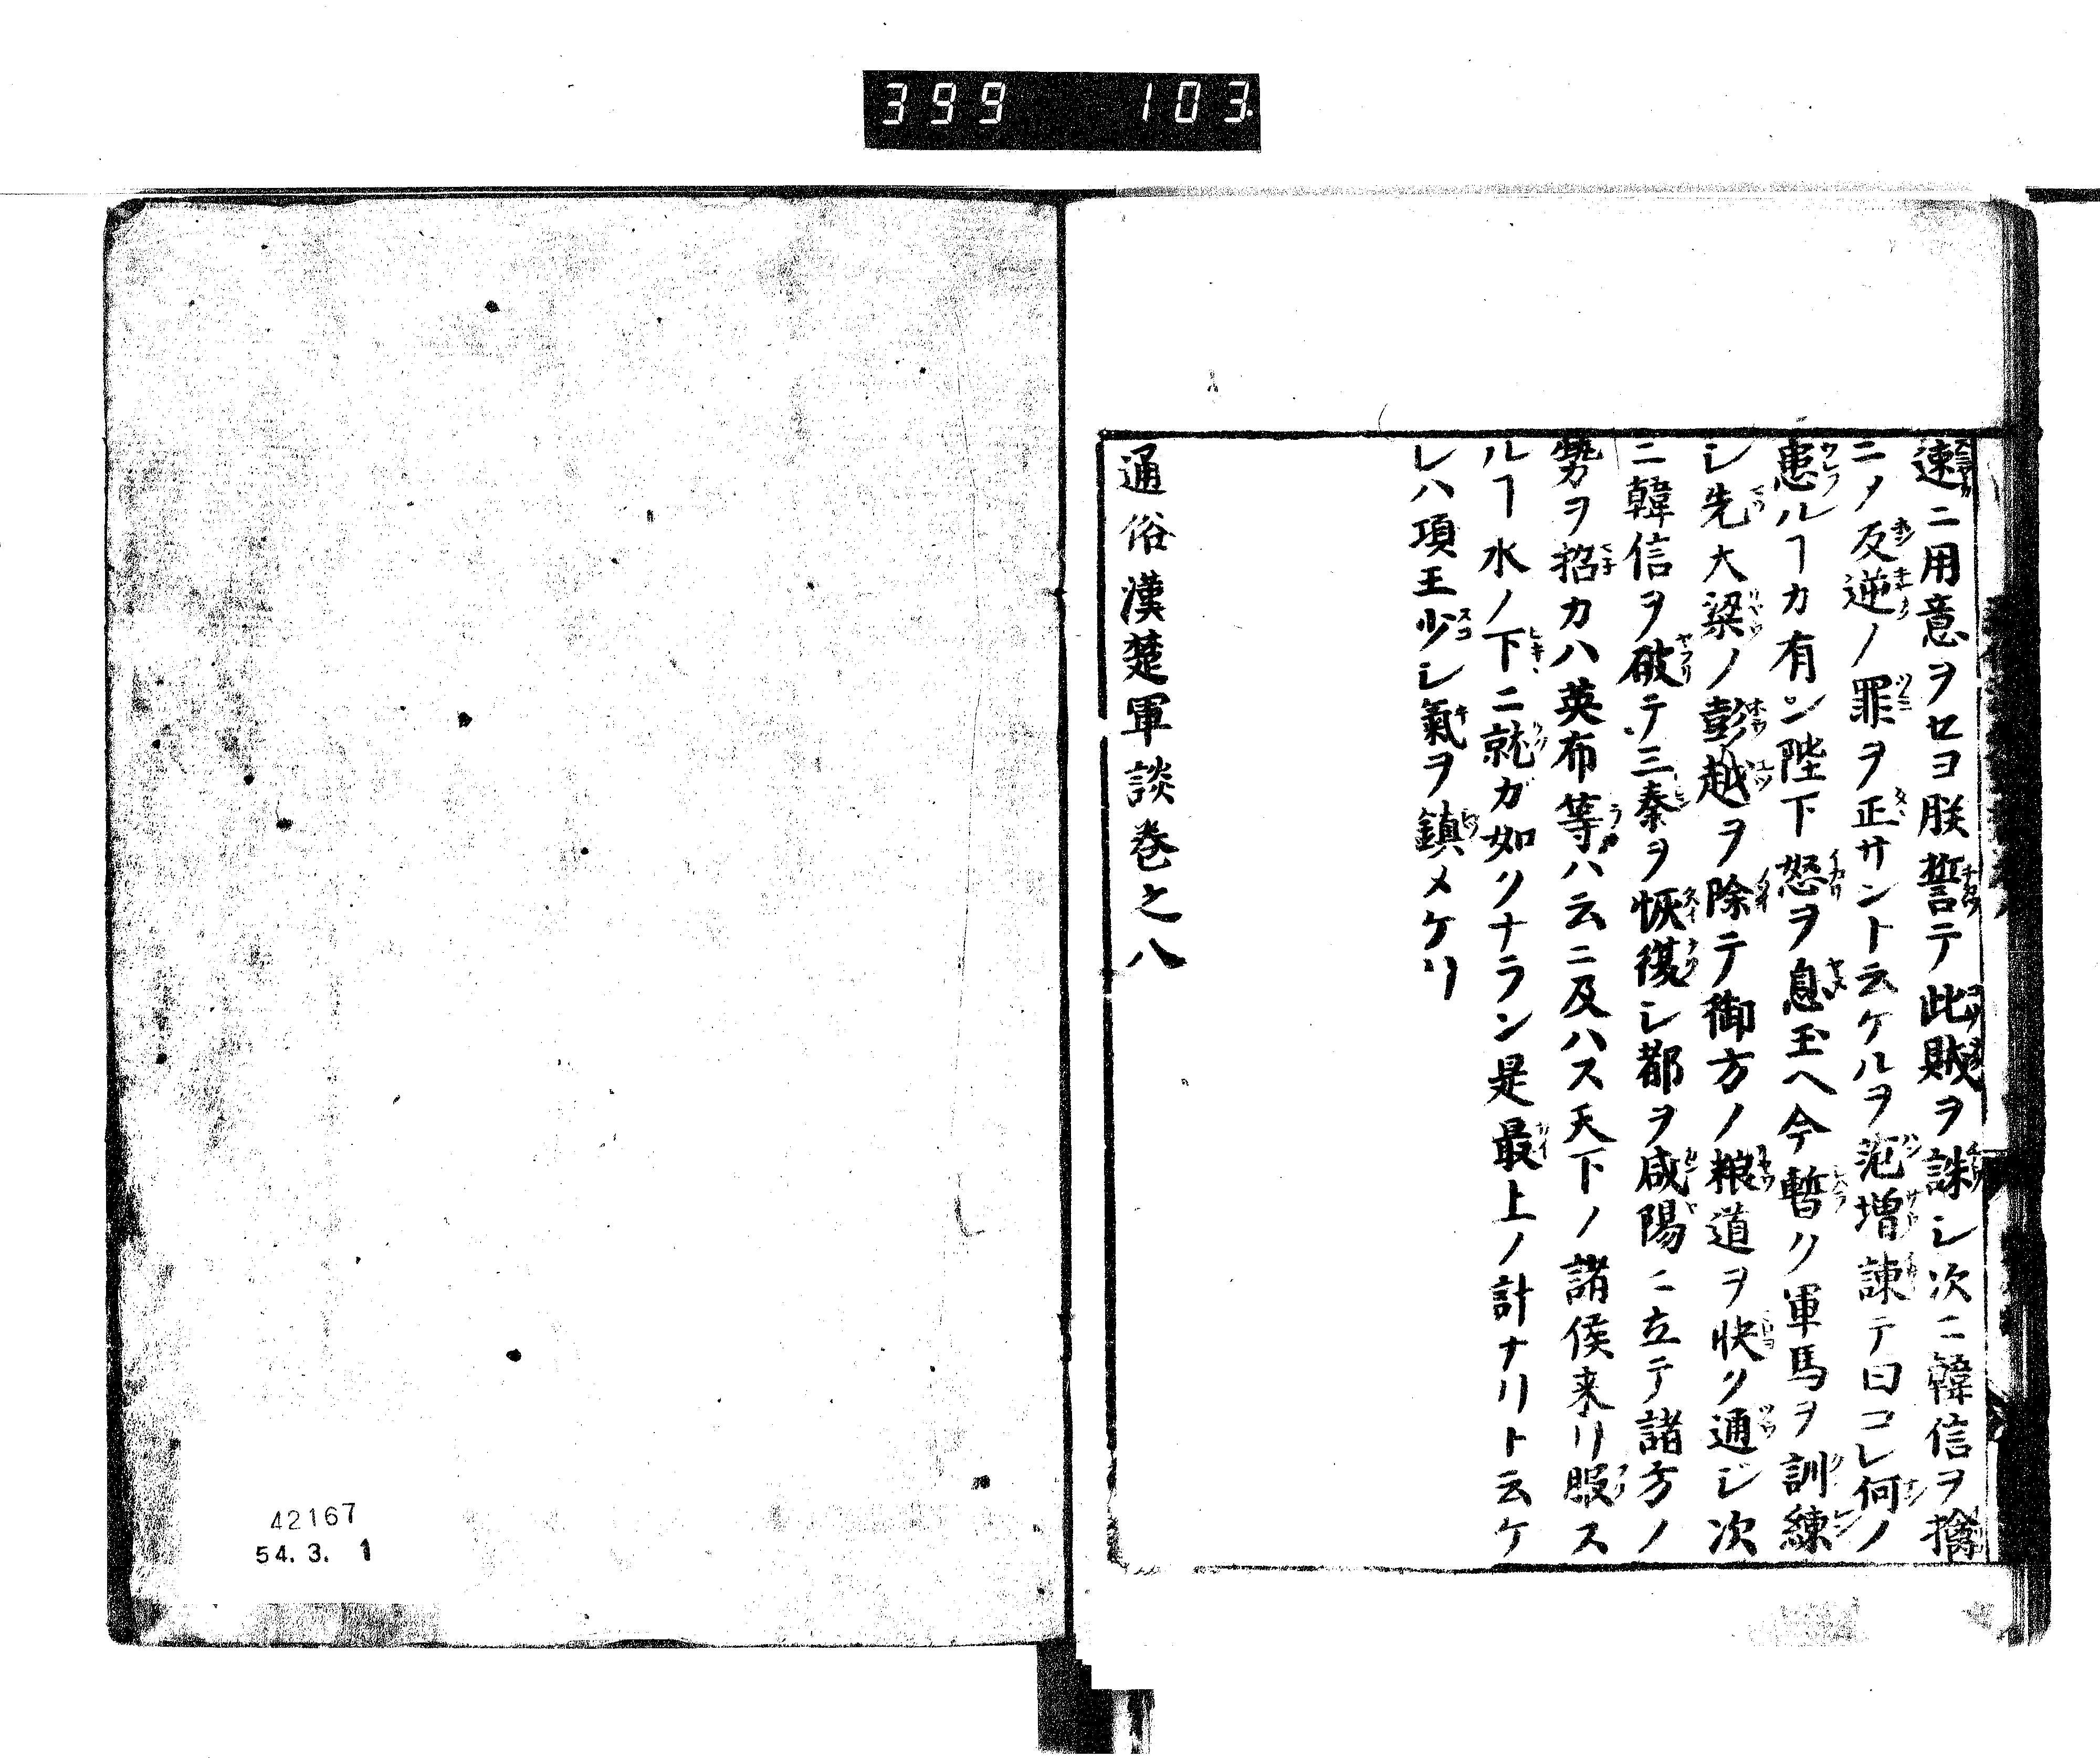 399 103
速ニ用意ヲセヨ朕誓テ此賊ヲ誅シ次ニ韓信ヲ擒
ニノ反逆ノ罪ヲ正サント云ケルヲ范増諌テ曰コレ何ノ
患ルヿカ有ン陛下怒ヲ息玉ヘ今暫ク軍馬ヲ訓練
シ先大梁ノ彭越ヲ除テ御方ノ粮道ヲ快ク通ジ次
ニ韓信ヲ破テ三秦ヲ恢復シ都ヲ咸陽ニ立テ諸方ノ
勢ヲ招カハ英布等ハ云ニ及ハス天下ノ諸侯来リ服ス
ルヿ水ノ下ニ就ガ如クナラン是最上ノ計ナリト云ケ
レハ項王少シ氣ヲ鎮メケリ
通俗漢楚軍談巻之八
42167
54. 3. 1